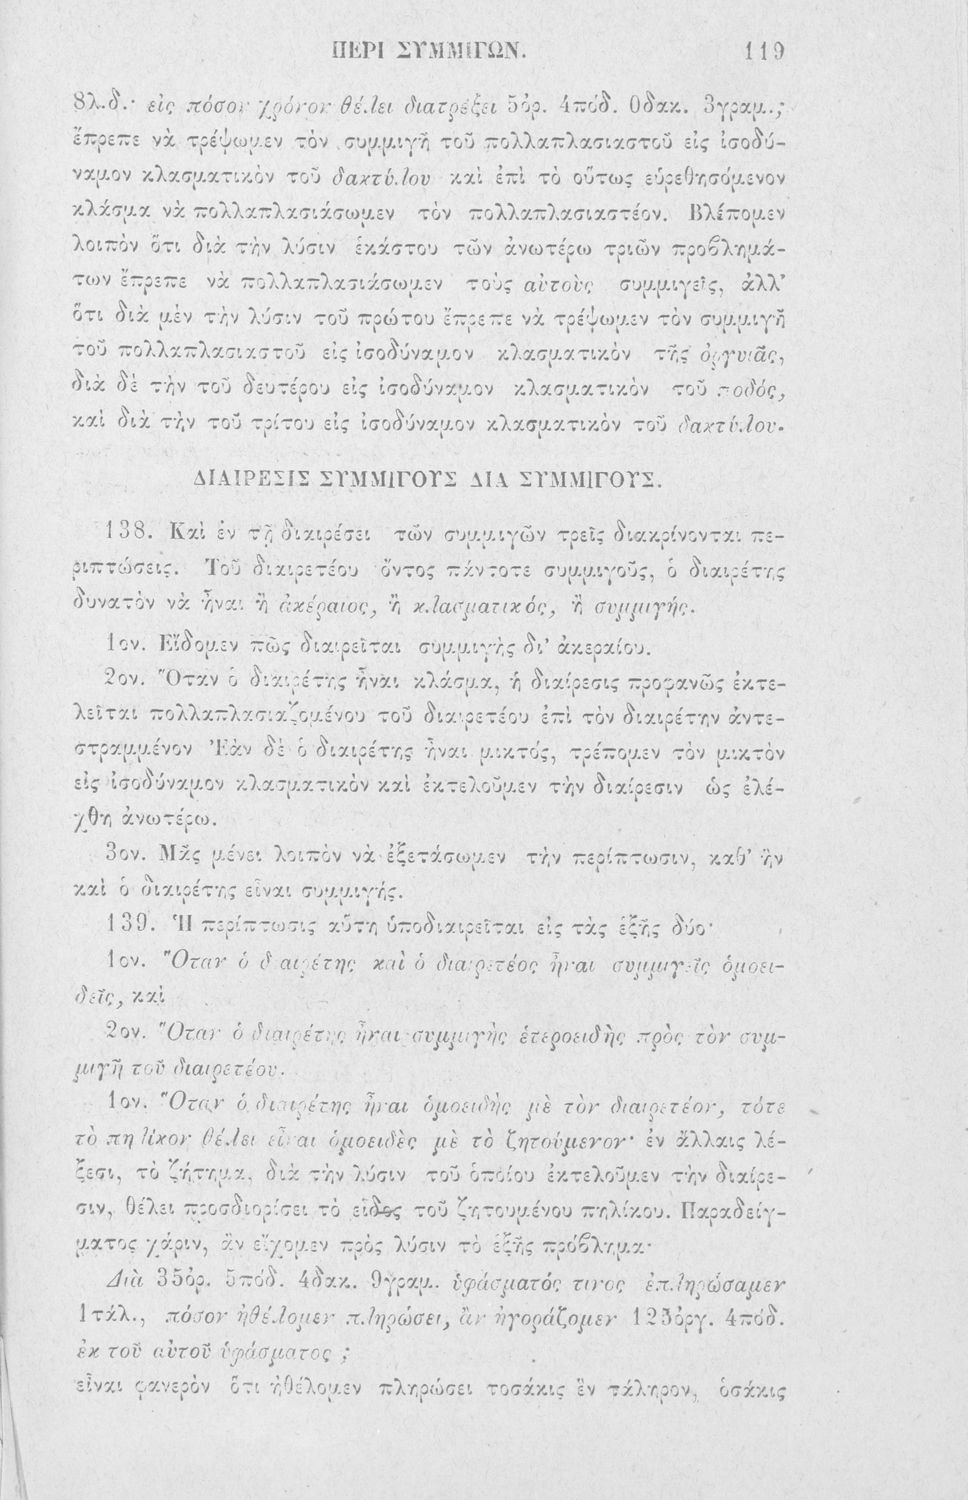 ΠΕΡΙ ΣΥΜΜΙΓΩΝ. 119
8λ.δ.· εἰς πόσον χρόνον θέλει διατρέξει 5ὀρ. 4πόδ. 0δακ. 3γραμ.;
ἔπρεπε νὰ τρέψωμεν τὸν συμμιγῆ τοῦ πολλαπλασιαστοῦ εἰς ἰσοδύ-
ναμον κλασματικὸν τοῦ δακτύλου καὶ ἐπὶ τὸ οὕτως εὑρεθησόμενον
κλάσμα νὰ πολλαπλασιάσωμεν τὸν πολλαπλασιαστέον. Βλέπομεν
λοιπὸν ὅτι διὰ τὴν λύσιν ἑκάστου τῶν ἀνωτέρω τριῶν προβλημά-
των ἔπρεπε νὰ πολλαπλασιάσωμεν τοὺς αὐτοὺς συμμιγεῖς, ἀλλ’
ὅτι διὰ μὲν τὴν λύσιν τοῦ πρώτου ἔπρεπε νὰ τρέψωμεν τὸν συμμιγῆ
τοῦ πολλαπλασιαστοῦ εἰς ἰσοδύναμον κλασματικὸν τῆς ὀργυιᾶς,
διὰ δὲ τὴν τοῦ δευτέρου εἰς ἰσοδύναμον κλασματικὸν τοῦ ποδός,
καὶ διὰ τὴν τοῦ τρίτου εἰς ἰσοδύναμον κλασματικὸν τοῦ δακτύλου.
ΔΙΑΙΡΕΣΙΣ ΣΥΜΜΙΓΟΥΣ ΔΙΑ ΣΥΜΜΙΓΟΥΣ.
138. Καὶ ἐν τῇ διαιρέσει τῶν συμμιγῶν τρεῖς διακρίνονται πε-
ριπτώσεις. Τοῦ διαιρετέου ὄντος πάντοτε συμμιγοῦς, ὁ διαιρέτης
δυνατὸν νὰ ἦναι ἢ ἀκέραιος, ἢ κλασματικός, ἢ συμμιγής.
1ον. Εἴδομεν πῶς διαιρεῖται συμμιγὴς δι’ ἀκεραίου.
2ον. Ὅταν ὁ διαιρέτης ἦναι κλάσμα, ἡ διαίρεσις προφανῶς ἐκτε-
λεῖται πολλαπλασιαζομένου τοῦ διαιρετέου ἐπὶ τὸν διαιρέτην ἀντε-
στραμμένον Ἐὰν δὲ ὁ διαιρέτης ἦναι μικτός, τρέπομεν τὸν μικτὸν
εἰς ἰσοδύναμον κλασματικὸν καὶ ἐκτελοῦμεν τὴν διαίρεσιν ὡς ἐλέ-
χθη ἀνωτέρω.
3ον. Μᾶς μένει λοιπὸν νὰ ἐξετάσωμεν τὴν περίπτωσιν, καθ’ ἣν
καὶ ὁ διαιρέτης εἶναι συμμιγής.
139. Ἡ περίπτωσις αὕτη ὑποδιαιρεῖται εἰς τὰς ἑξῆς δύο·
1ον. Ὅταν ὁ διαιρέτης καὶ ὁ διαιρετέος ἦναι συμμιγεῖς ὁμοει-
δεῖς, καὶ
2ον. Ὅταν ὁ διαιρέτης ἦναι συμμιγὴς ἑτεροειδὴς πρὸς τὸν συμ-
μιγῆ τοῦ διαιρετέου.
1ον. Ὅταν ὁ διαιρέτης ἦναι ὁμοειδὴς μὲ τὸν διαιρετέον, τότε
τὸ πηλίκον θέλει εἶναι ὁμοειδὲς μὲ τὸ ζητούμενον· ἐν ἄλλαις λέ-
ξεσι, τὸ ζήτημα, διὰ τὴν λύσιν τοῦ ὁποίου ἐκτελοῦμεν τὴν διαίρε-
σιν, θέλει προσδιορίσει τὸ εἶδος τοῦ ζητουμένου πηλίκου. Παραδείγ-
ματος χάριν, ἂν εἴχομεν πρὸς λύσιν τὸ ἑξῆς πρόβλημα·
Διὰ 35ὀρ. 5πόδ. 4δακ. 9γραμ. ὑφάσματός τινος ἐπληρώσαμεν
1τάλ., πόσον ἠθέλομεν πληρώσει, ἂν ἠγοράζομεν 125ὀργ. 4πόδ.
ἐκ τοῦ αὐτοῦ ὑφάσματος ;
εἶναι φανερὸν ὅτι ἠθέλομεν πληρώσει τοσάκις ἓν τάληρον, ὁσάκις